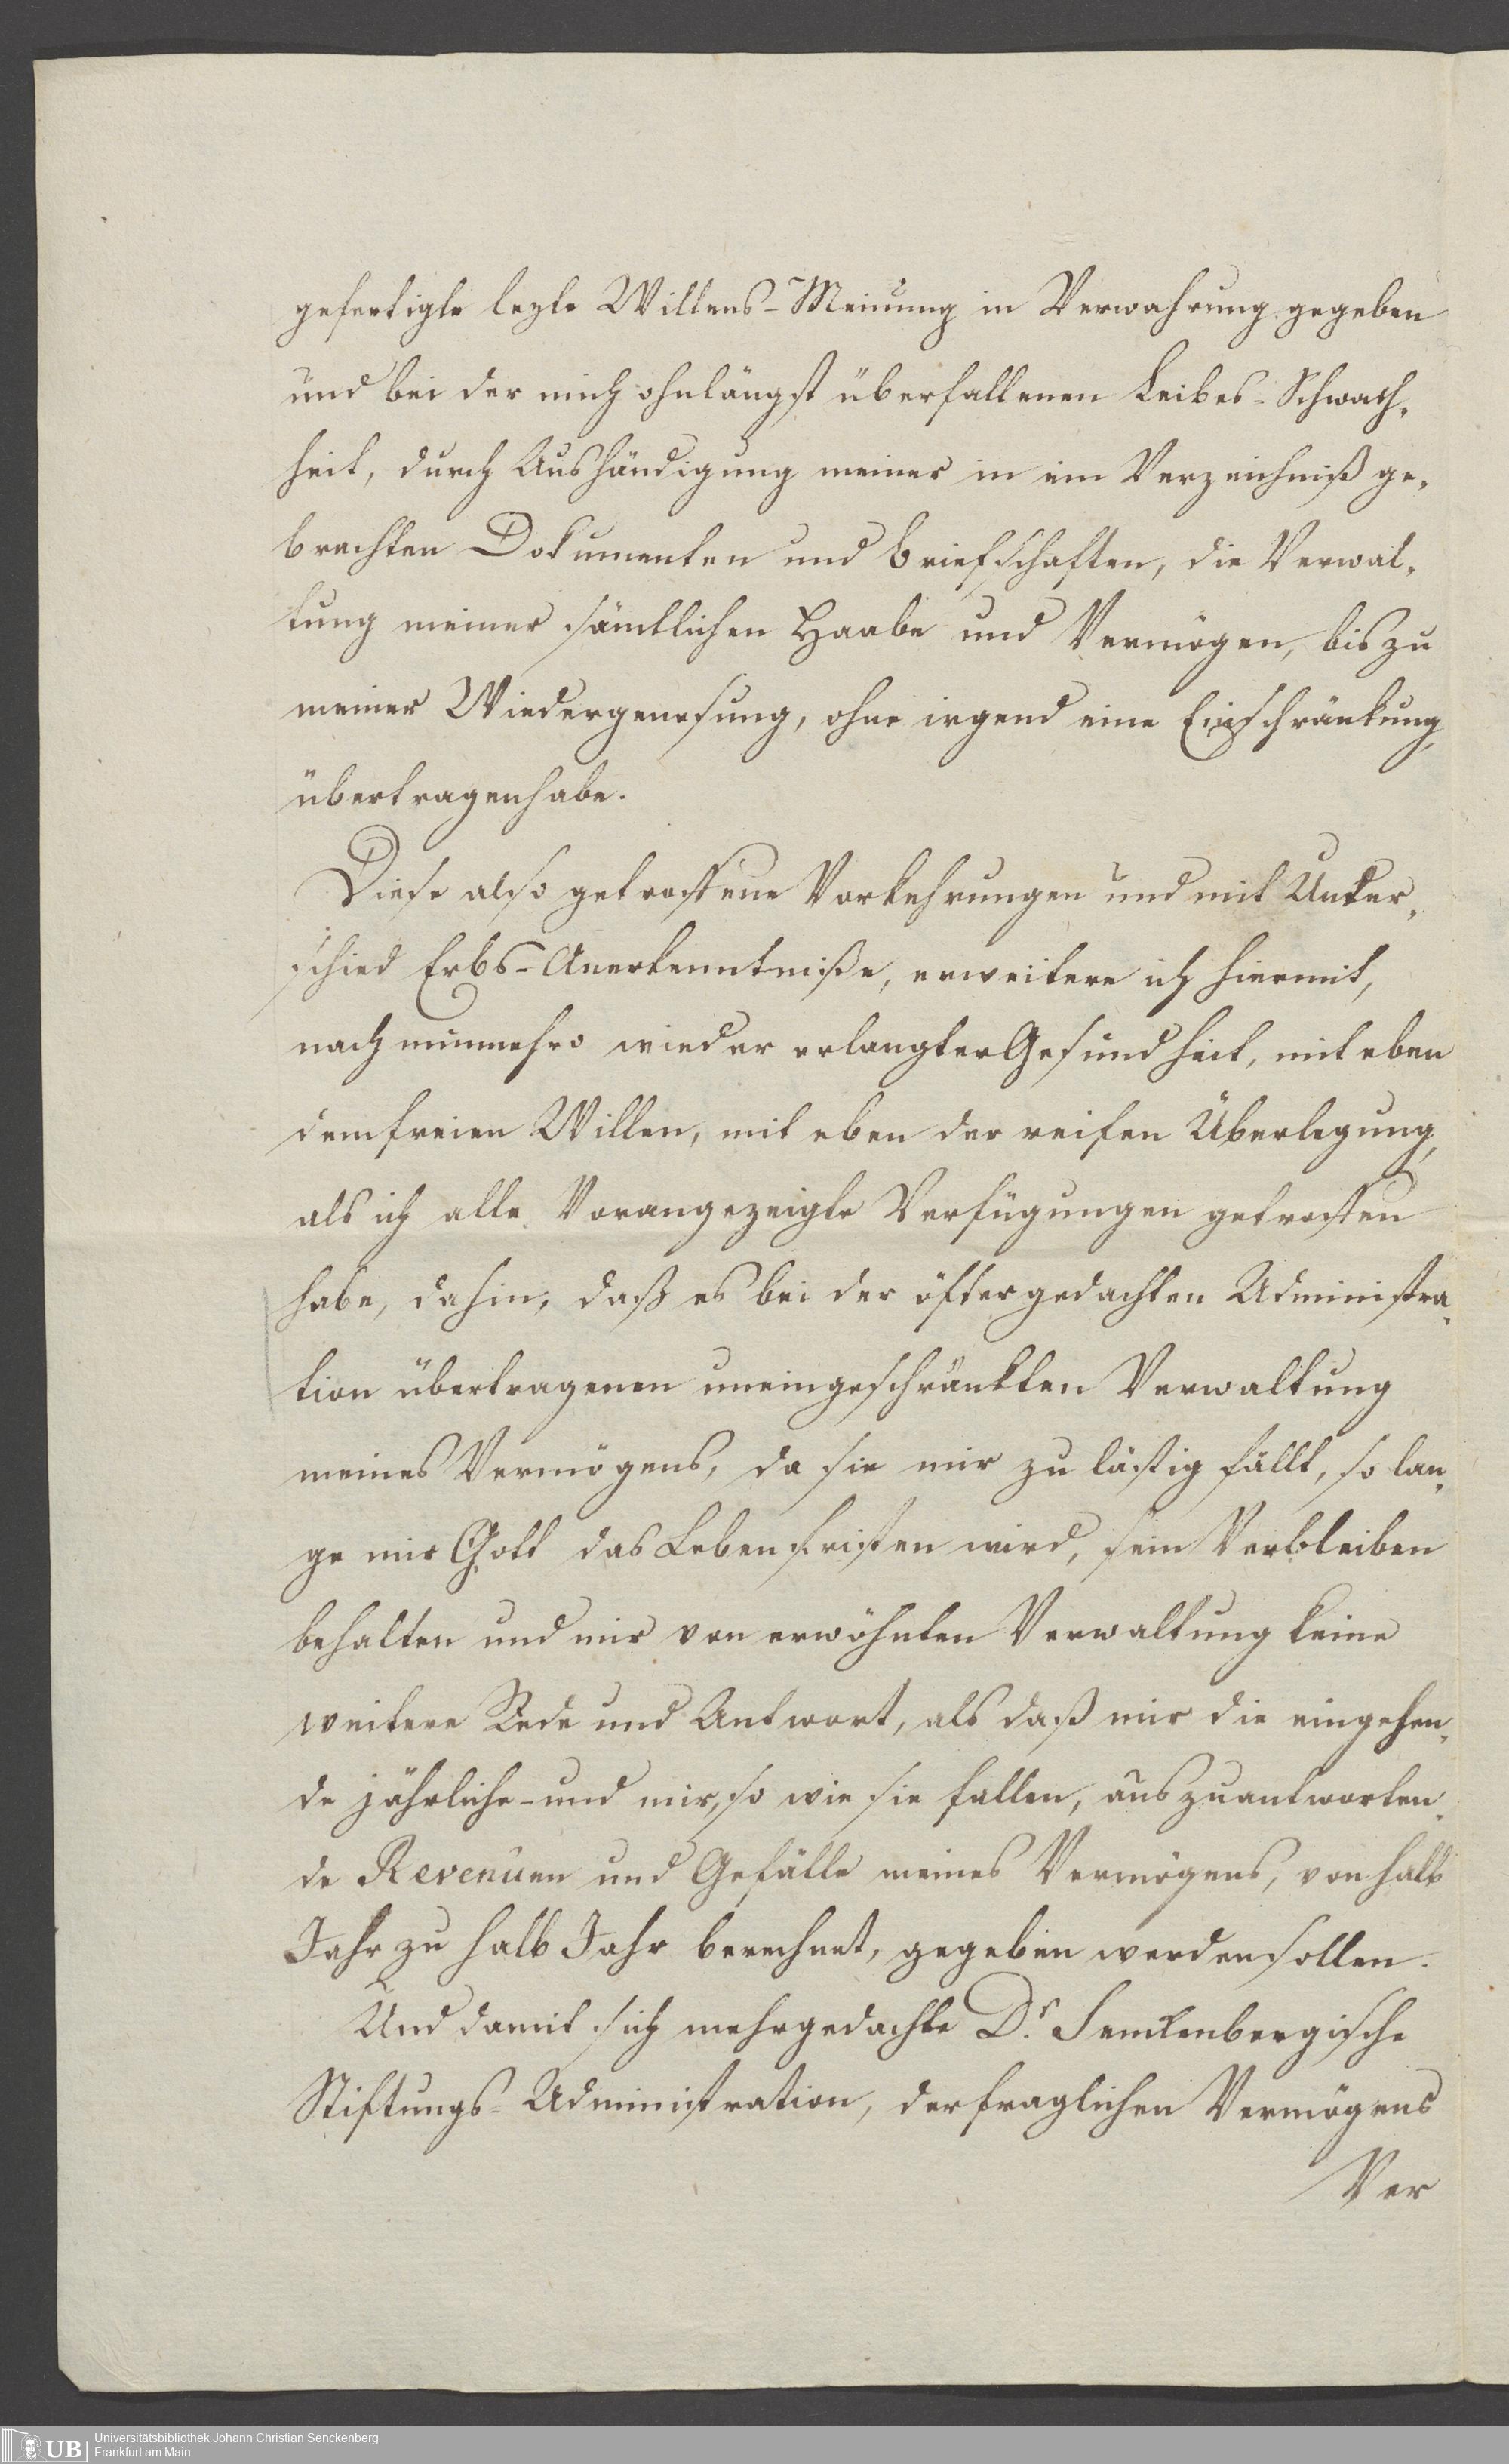 gefertigte lezte Willens-Meinung in Verwahrung gegeben
und bei der mich ohnlängst überfallenen Leibes-Schwach-
heit, durch Aushändigung meiner in ein Verzeichniß ge-
brachten Dokumenten und Briefschaften, die Verwal-
tung meiner sämtlichen Haabe und Vermögen, bis zu
meiner Wiedergenesung, ohne irgend eine Einschränkung,
übertragen habe.
Diese also getroffene Vorkehrungen und mit Unter-
schied Erbs-Anerkenntniße, erweitere ich hiermit,
nach nunmehro wieder erlangter Gesundheit, mit eben
dem freien Willen, mit eben der reifen Überlegung,
als ich alle Vorangezeigte Verfügungen getroffen
habe, dahin, daß es bei der öftergedachten Administra-
tion übertragenen uneingeschränkten Verwaltung
meines Vermögens, da sie mir zu lästig fällt, so lan-
ge mir Gott das Leben fristen wird, sein Verbleiben
behalten und mir von erwöhnten Verwaltung keine
weitere Rede und Antwort, als daß mir die eingehen-
de jährliche- und mir, so wie sie fallen, auszuantworten-
de Revenüen und Gefälle meines Vermögens, von halb
Jahr zu halb Jahr berechnet, gegeben werden sollen.
Und damit sich mehrgedachte Dr. Senkenbergische
Stiftungs-Administration, der fraglichen Vermögens
Ver
UB
Universitätsbibliothek Johann Christian Senckenberg
Frankfurt am Main